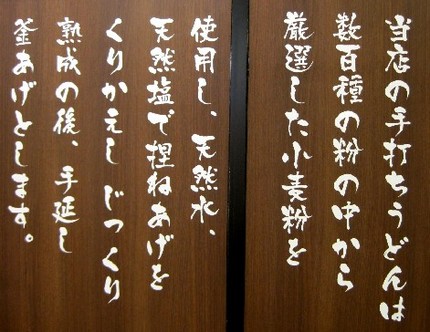 当店の手打ちうどんは
数百種の粉の中から
厳選した小麦粉を
使用し、天然水、
天然塩で捏ねあげを
くりかえしじっくり
熟成の後、手延し
釜あげとします。